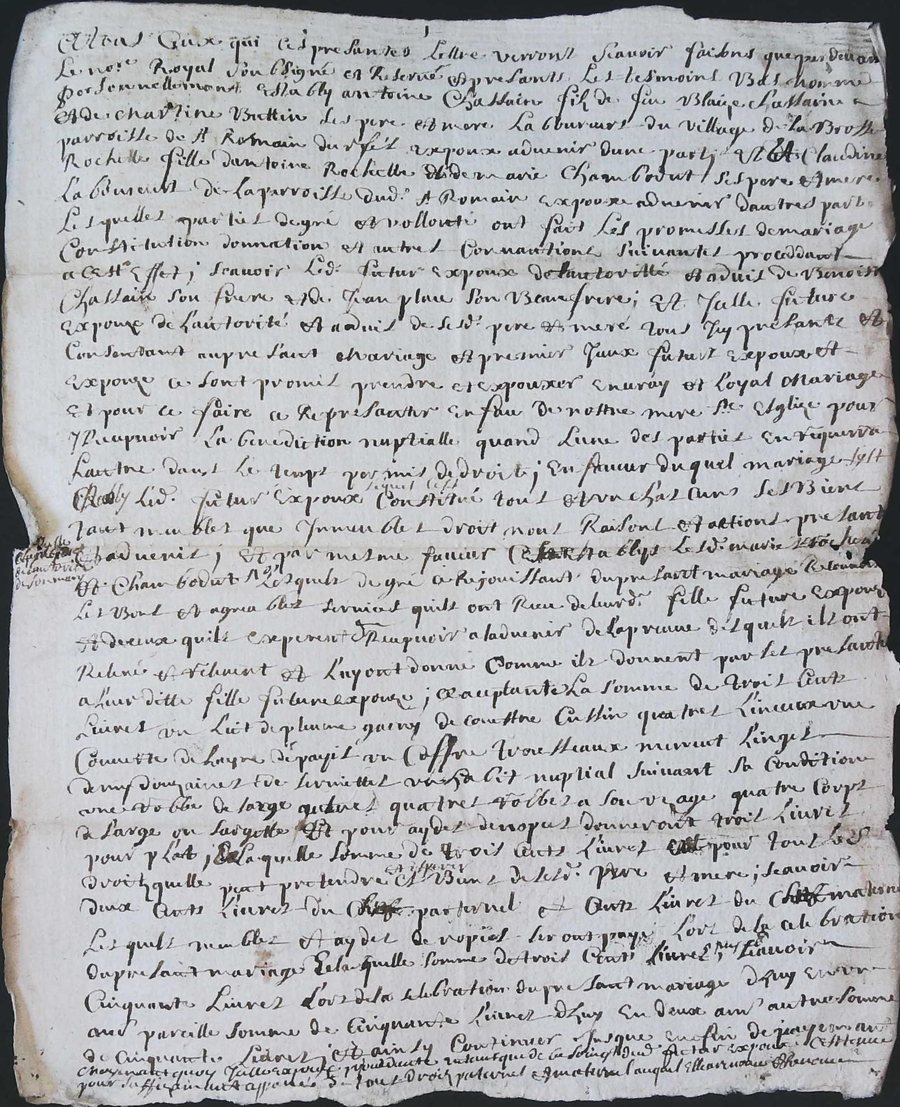 A tous Ceux qui Ces presantes Lettre verront scavoir faisons que par devan
Le nore Royal soubsigné et Reservé et presants Les tesmoins Bas nommé
personnellement estably antoine Chassain filz de feu Blaize Chassaine
et de Charline Buttin ses pere et mere Laboureurs du village de La Brosse
parroisse de st Romain durfé expoux advenir dune part; Et Claudine
Rochelle fille dantoine Rochelle et de marie Chambodut ses pere et mere
Laboureurs de La parroisse dud. st Romain expouze advenir dautres part
Lesquelles parties de gré et vollonté ont fait Les promesses de mariage
Constitution donnation et autres Convantions suivantes proceddant
a Cest Effet; scavoir Led. futur expoux de Lautorité et aduis de Benoist
Chassain son frere et de Jean plau son Beaufrere; Et Jcelle future
expouze de Lautorité et aduis de sesd. pere et mere tous Jcy presants et
Consentant au presant Mariage et premier Jceux futurs expoux et
expouze ce sont promis prendre et expouxer en vray et Loyal Mariage
Et pour ce faire ce Represanter en face de nostre mere ste Esglize pour
y Recepuoir La benediction nuptialle quand Lune des parties en requerra
Lautre dans Le temps permis de droit; En faveur duquel mariage sest
Led. futur expoux Constitué tous et un chascuns ses Biens
tant meubles que Jmmeubles droit noms Raisons et actions presant
et advenir; et par mesme faveur establys Lesd. marie
et Chambodut Lesquels de gré ce Rejouissant du presant mariage
Les Bons et agreables services quils ont Receu de leurd. fille future expouze
et de ceux quils experent Recepuoir a Ladvenir de La preuve desquels ils ont
Relevé et relevent et Luy ont donné Comme ils donnent par Les presantes
a Leur ditte fille future expouze; La somme de trois cents
Livres un Lict de plume garny de couettre Cussin quatres Linceux une
Couverte de Layne de pays un Coffre trousseaux menut Linges
demy douzaines de serviettes un habit nuptial suivant sa Condition
une Robbe de sarge quatres robbes a son uzage quatre Corps
de sarge ou sargette Et pour aydes de nopces donneront trois Livres
pour plat; La quelle somme de trois Cents Livres est pour tous Les
droits quelle peut pretendre et Biens de sesd. pere et mere; scavoir
deux Cents Livres du Chef paternel et Cents Livres du Chef maternel
Lesquels meubles et aydes de nopces seront payé Lors de la celebration
du presant mariage et La quelle somme de trois Cents Livres scavoir
Cinquante Livres Lors de la celebration du presant mariage dhuy en une
an pareille somme de Cinquante Livres dhuy en deux ans autre somme
de Cinquante Livres; et ainsy Continuer Jusque en fin de payement
moyenant quoy Jcelle expouze future expoux
pour de tous droits paternel et maternel auquel